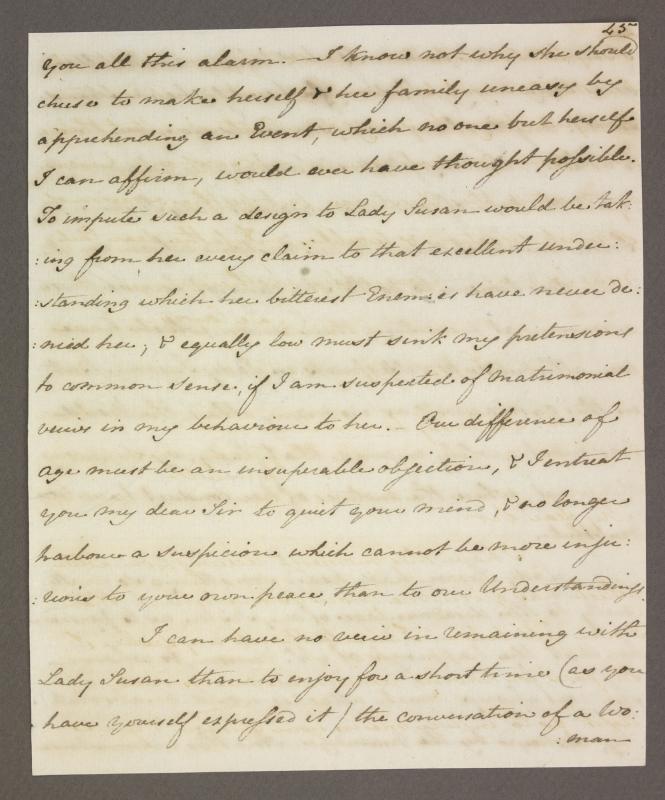 45
you all this alarm. — I know not why she should
chuse to make herself & her family uneasy by
apprehending an Event, which no one but herself
I can affirm, would ever have thought possible.
To impute such a design to Lady Susan would be tak:
:ing from her every claim to that excellent under:
:standing which her bitterest Enemies have never de:
:nied her; & equally low must sink my pretensions
to common sense, if I am suspected of matrimonial
veiws in my behaviour to her. — Our difference of
age must be an insuperable objection, & I entreat
you my dear Sir to quiet your mind, & no longer
harbour a suspicion which cannot be more inju:
:rious to your own peace than to our Understandings.
I can have no veiw in remaining with
Lady Susan than to enjoy for a short time (as you
have yourself expressed it) the conversation of a Wo:
:man